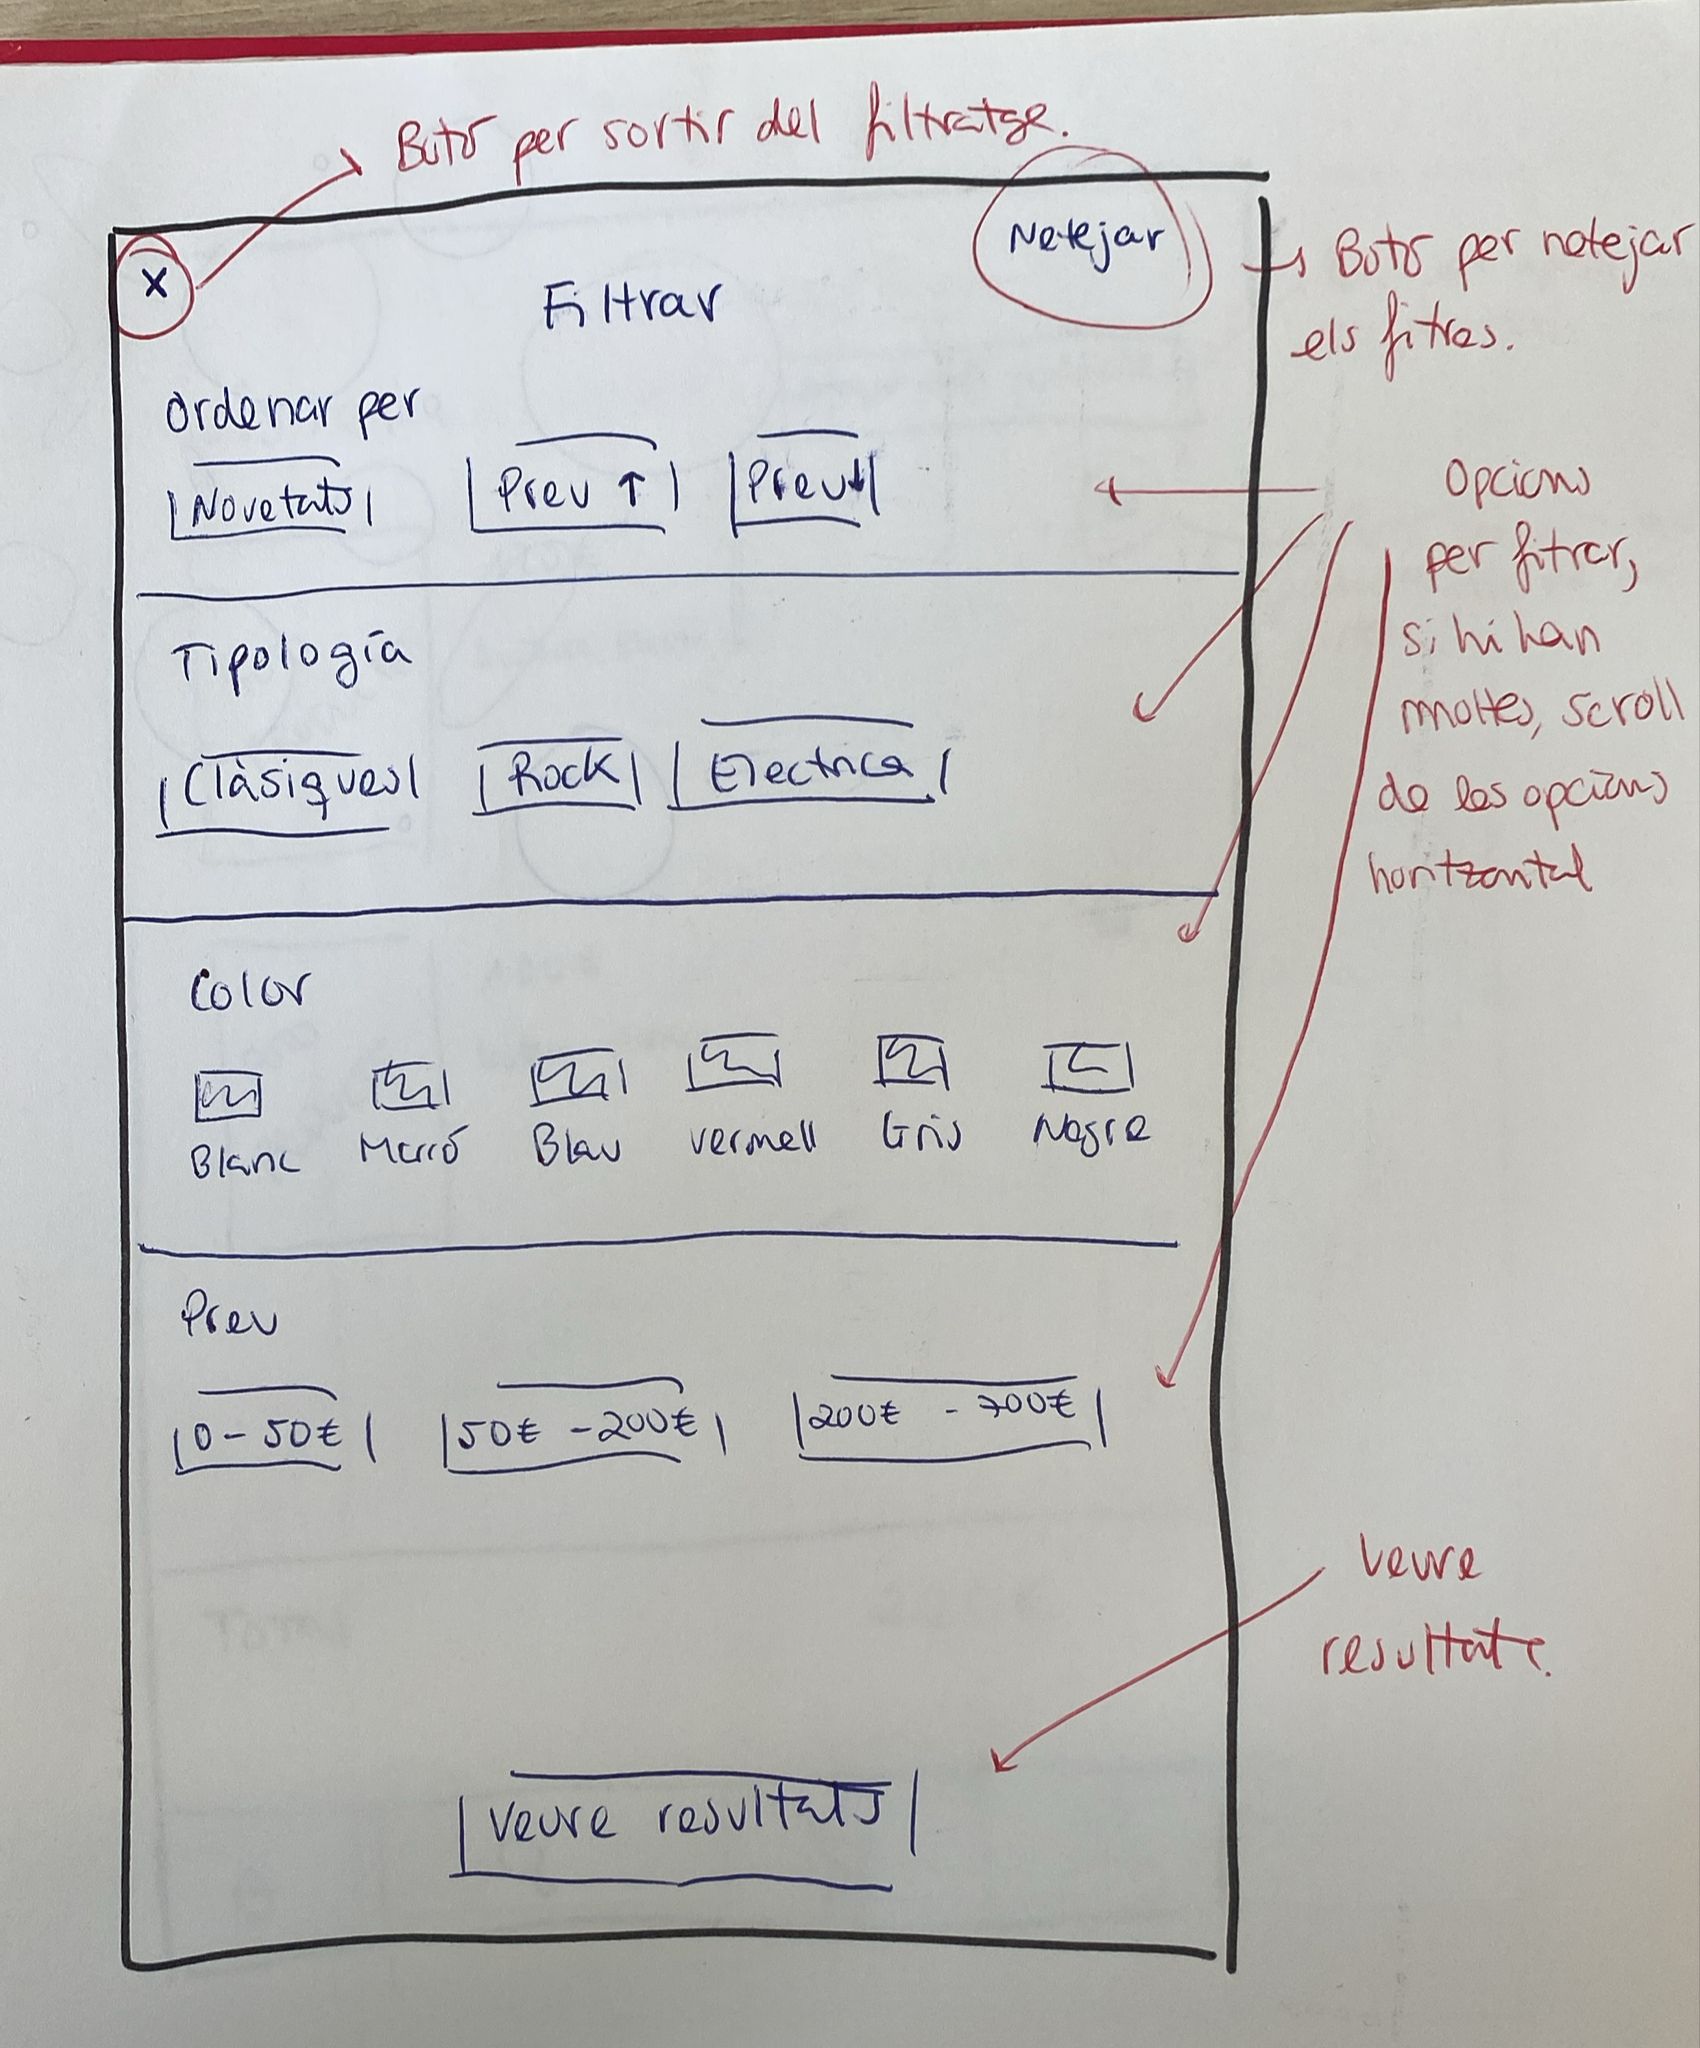 Botó per sortir del filtratge.
X
Netejar
Filtrar
Botó per netejar
els fitres.
Ordenar per
Novetats
Preu ↑
Preu ↓
Opcions
per fitrar,
si hi han
moltes, scroll
de les opcions
horitzontal
Tipología
Clàsiques
Rock
Electrica
Color
Blanc
Marró
Blau
vermell
Gris
Negre
Preu
0 - 50€
50€ - 200€
200€ - 700€
Veure
resultats.
Veure resultats